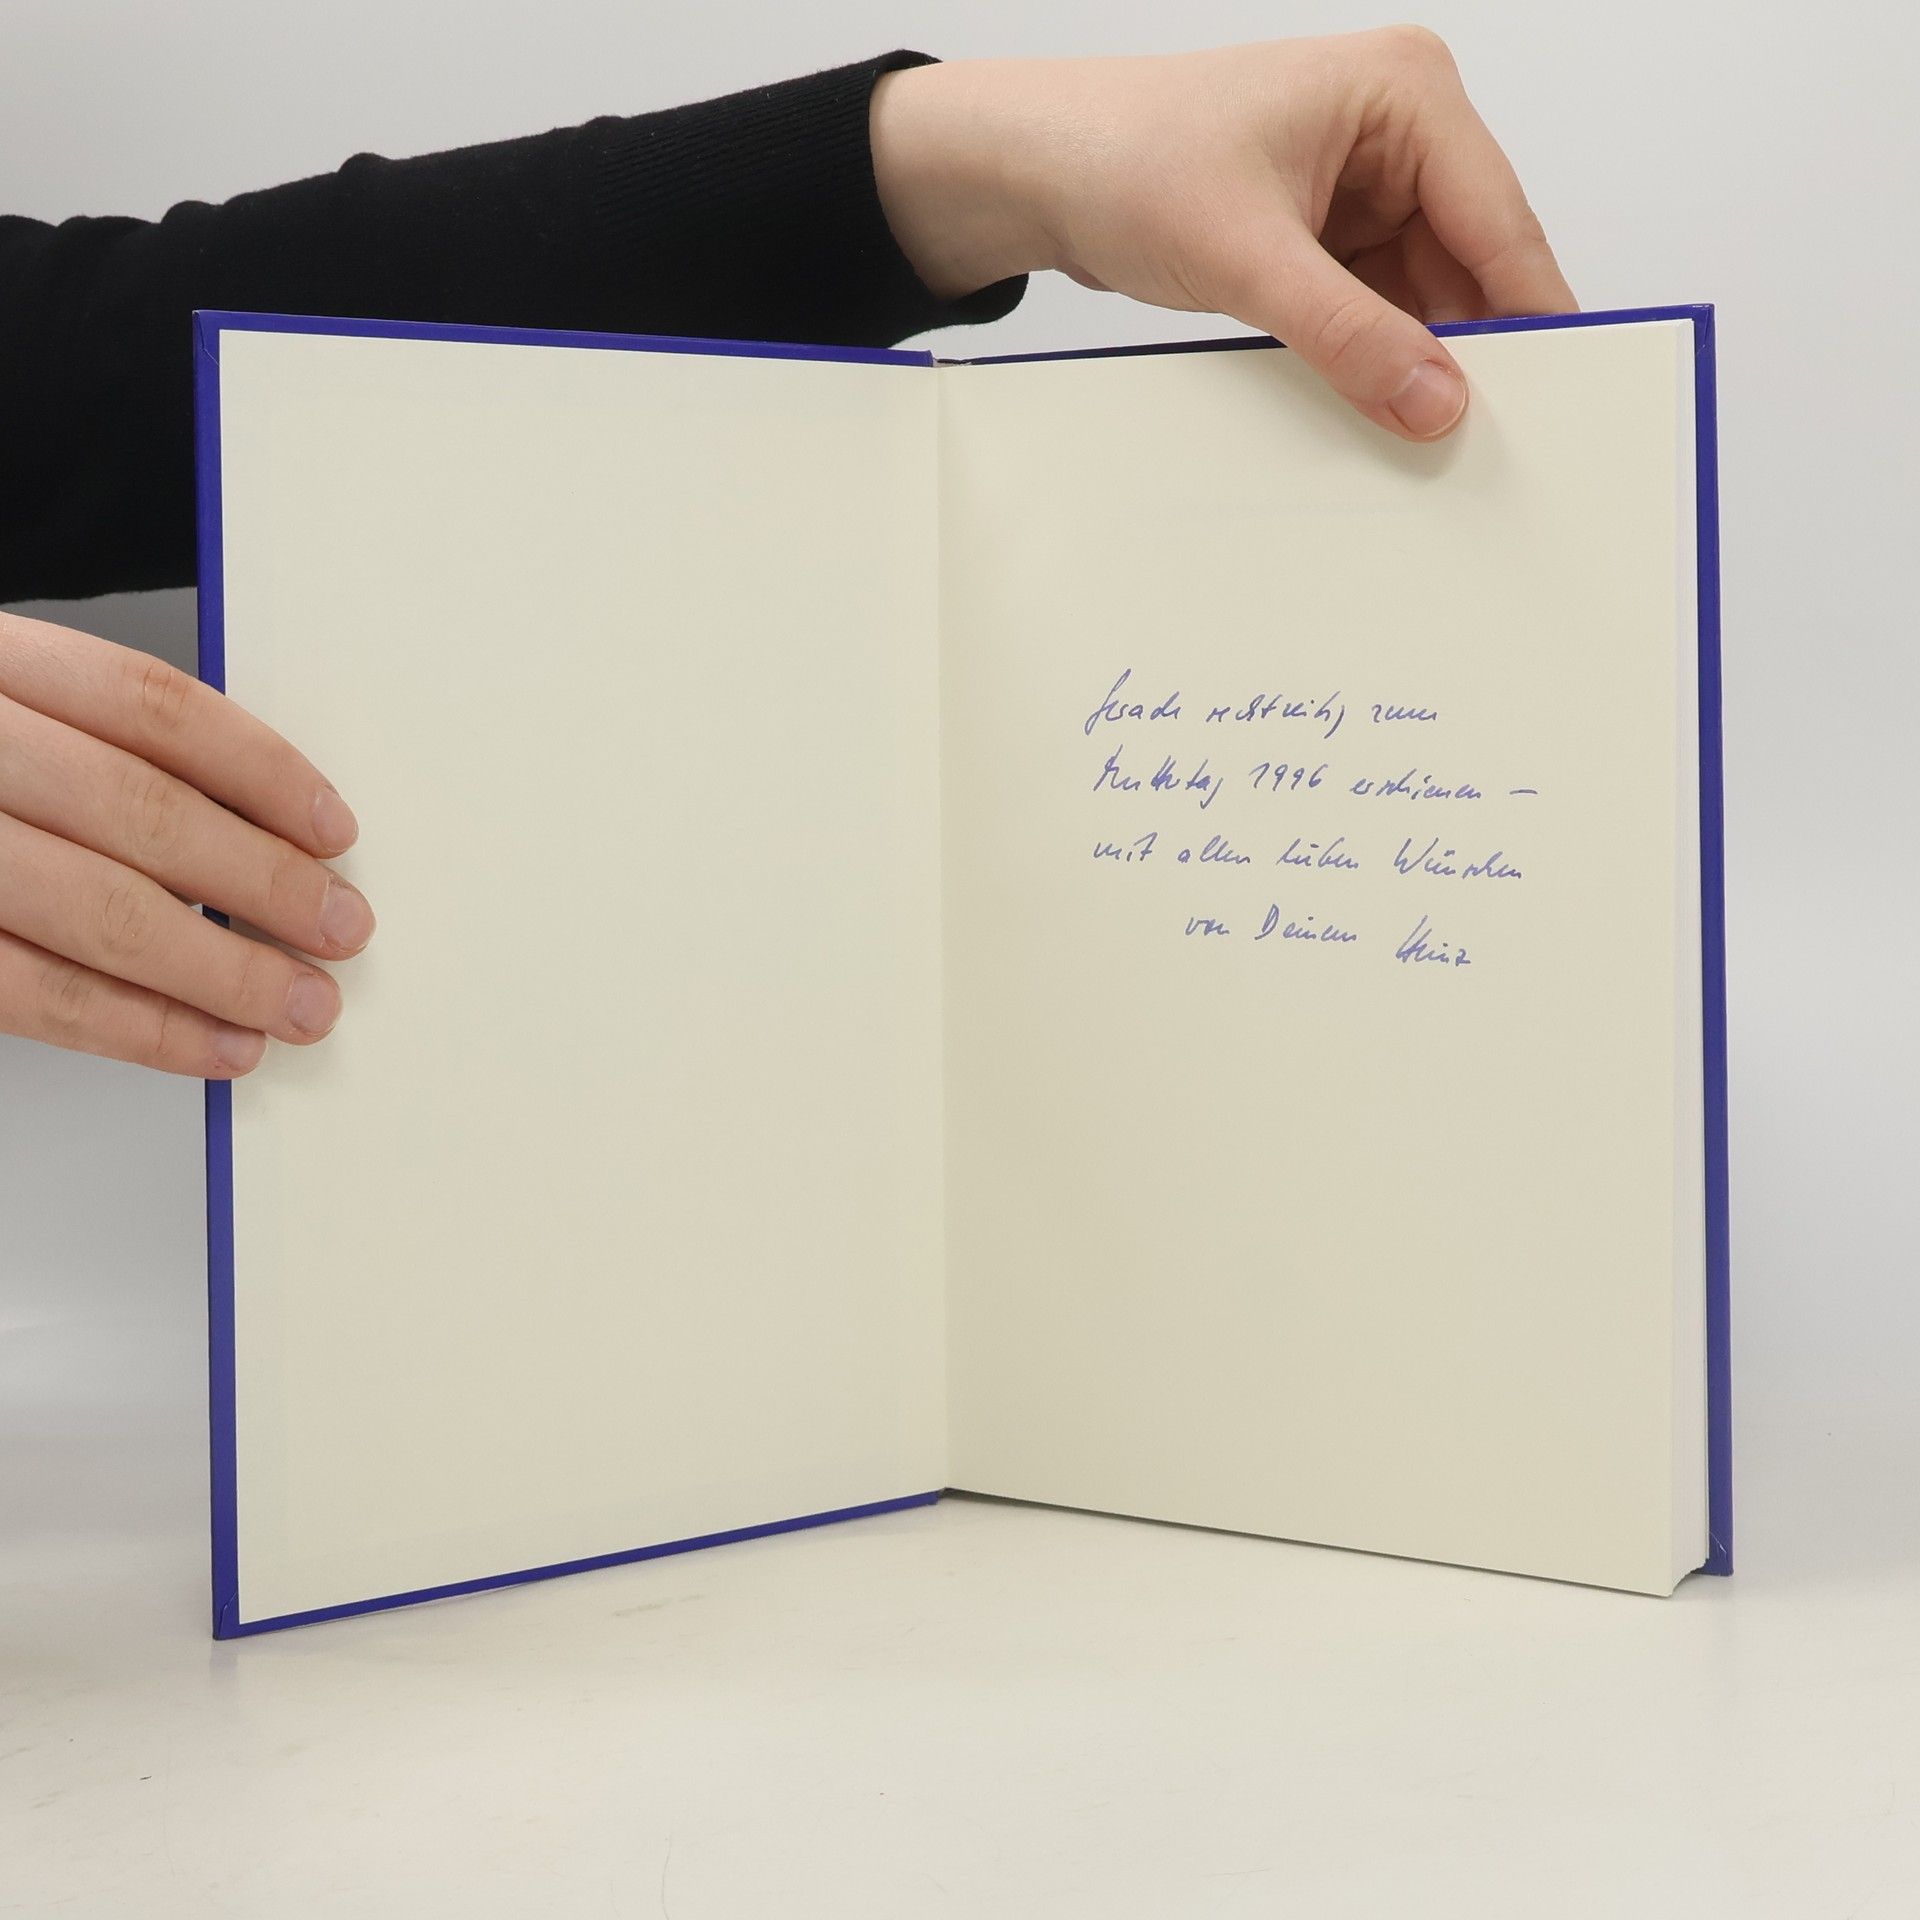 Gerade rechtzeitig zum
Muttertag 1996 erschienen –
mit allen lieben Wünschen
von Deinem Heinz